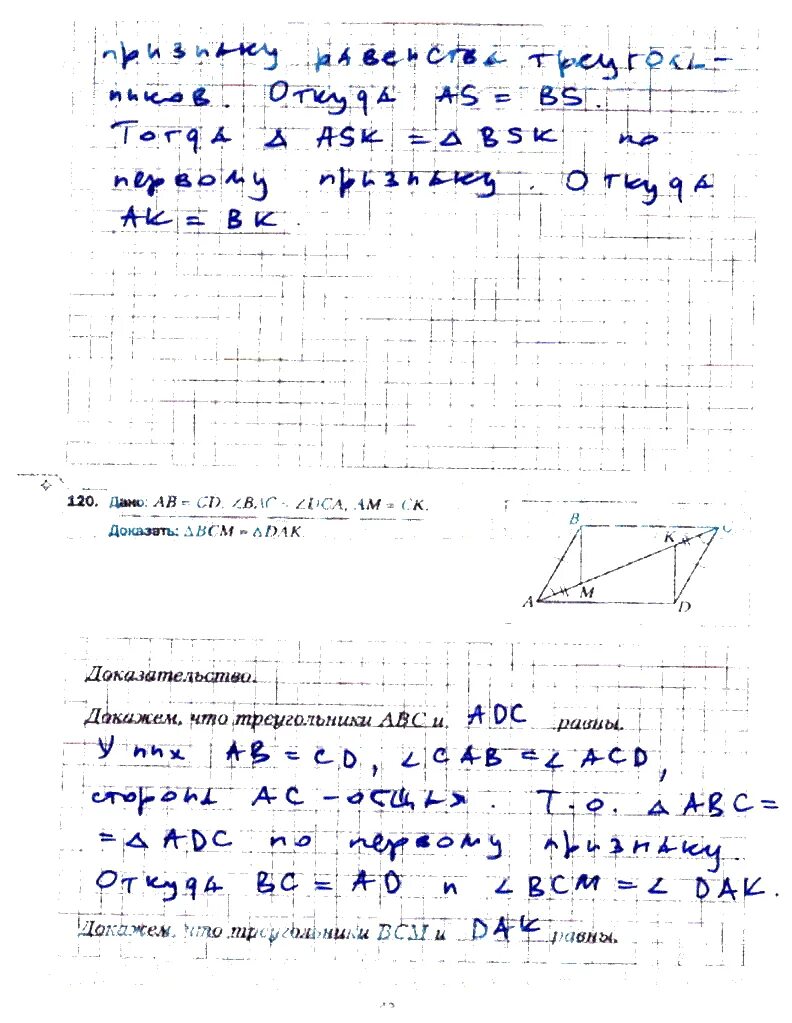 признаку равенства треуголь-
ников. Откуда AS = BS.
Тогда Δ ASK = Δ BSK по
первому признаку. Откуда
AK = BK.
120. Дано: AB = CD, ∠BAC = ∠DCA, AM = CK.
Доказать: ΔBCM = ΔDAK.
B
C
K
A
M
D
Доказательство.
Докажем, что треугольники ABC и ADC равны.
У них AB = CD, ∠CAB = ∠ACD,
сторона AC – общая. Т.о. Δ ABC =
= Δ ADC по первому признаку
Откуда BC = AD и ∠BCM = ∠DAK.
Докажем, что треугольники BCM и DAK равны.